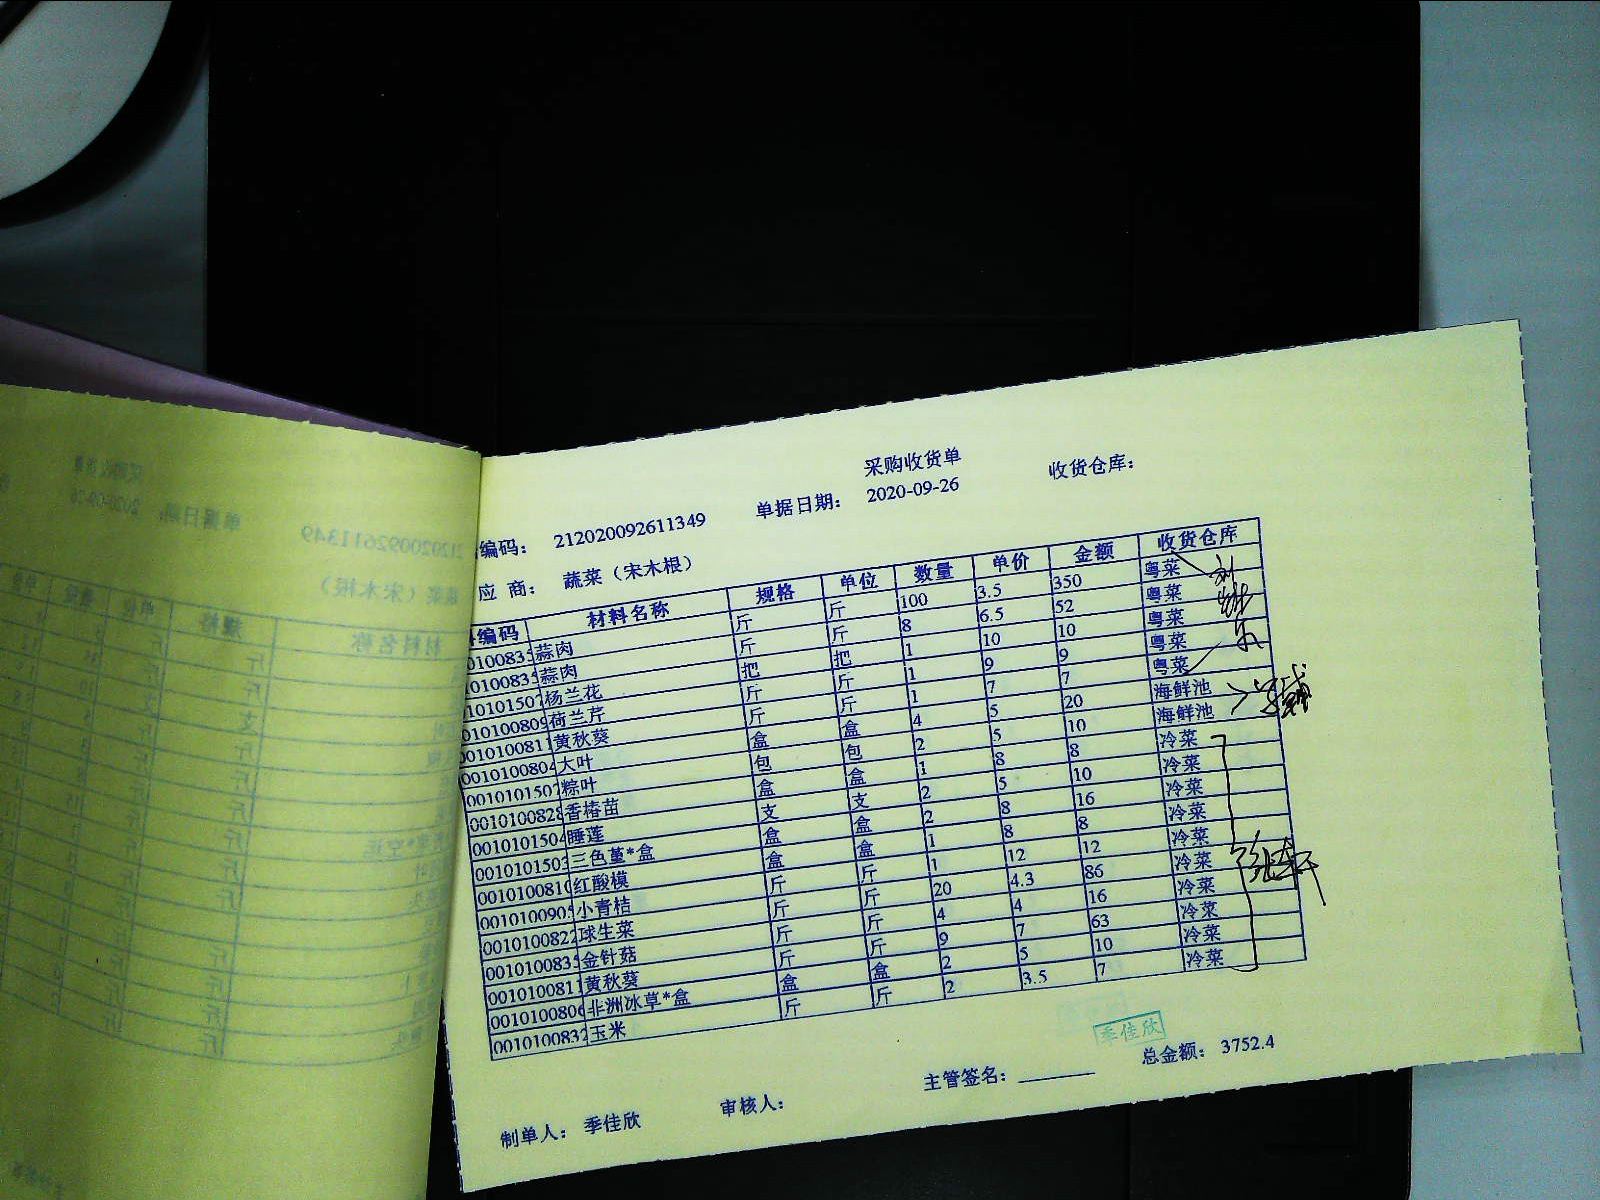 采购收货单
编码： 212020092611349 单据日期： 2020-09-26 收货仓库：
应 商： 蔬菜（宋木根）
编码 材料名称 规格 单位 数量 单价 金额 收货仓库
0100835 蒜肉 斤 斤 100 3.5 350 粤菜
0100835 蒜肉 斤 斤 8 6.5 52 粤菜
10101507 杨兰花 把 把 1 10 10 粤菜
010100809 荷兰芹 斤 斤 1 9 9 粤菜
0010100811 黄秋葵 斤 斤 1 7 7 粤菜
0010100804 大叶 盒 盒 4 5 20 海鲜池
0010101507 粽叶 包 包 2 5 10 海鲜池
0010100828 香椿苗 盒 盒 1 8 8 冷菜
0010101504 睡莲 支 支 2 5 10 冷菜
0010101503 三色堇*盒 盒 盒 2 8 16 冷菜
0010100810 红酸模 盒 盒 1 8 8 冷菜
0010100905 小青桔 斤 斤 1 12 12 冷菜
0010100822 球生菜 斤 斤 20 4.3 86 冷菜
0010100835 金针菇 斤 斤 4 4 16 冷菜
0010100811 黄秋葵 斤 斤 9 7 63 冷菜
0010100806 非洲冰草*盒 盒 盒 2 5 10 冷菜
0010100832 玉米 斤 斤 2 3.5 7 冷菜
季佳欣
制单人： 季佳欣 审核人： 主管签名： 总金额： 3752.4